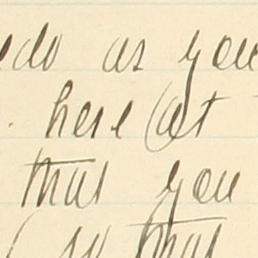 do as you
here (at
that you
so that